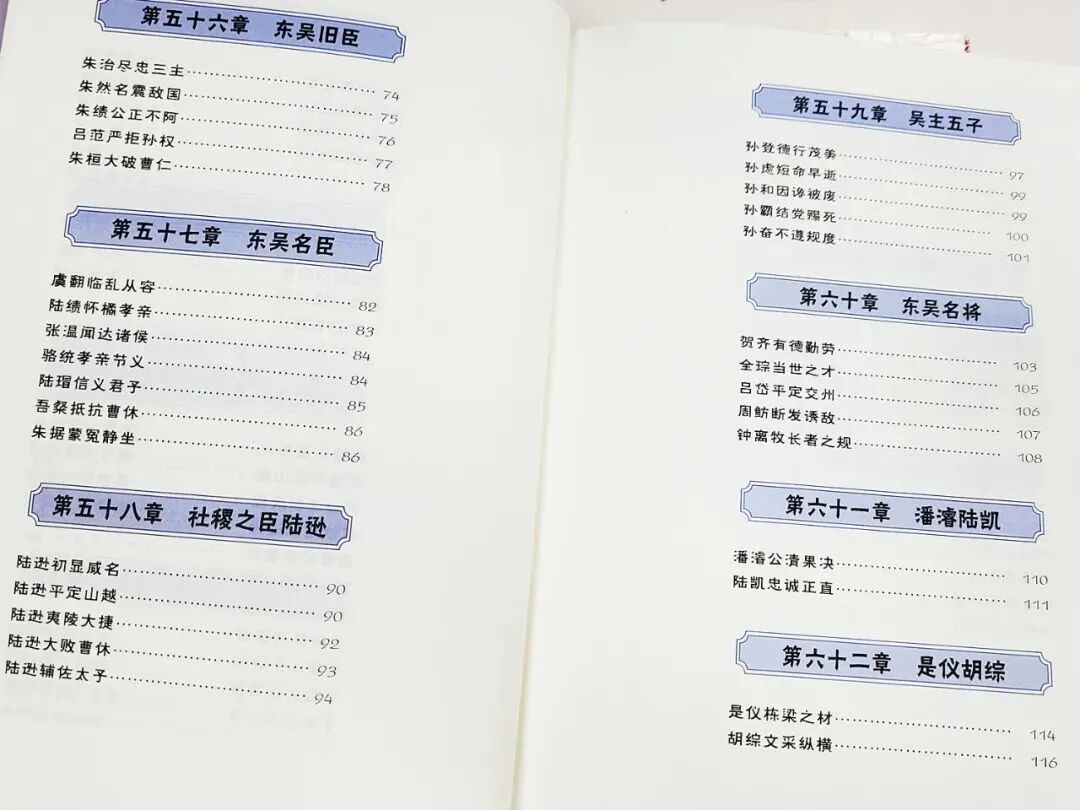 第五十六章 东吴旧臣
朱治尽忠三主 74
朱然名震敌国 75
朱绩公正不阿 76
吕范严拒孙权 77
朱桓大破曹仁 78
第五十七章 东吴名臣
虞翻临乱从容 82
陆绩怀橘孝亲 83
张温闻达诸侯 84
骆统孝亲节义 84
陆瑁信义君子 85
吾粲抵抗曹休 86
朱据蒙冤静坐 86
第五十八章 社稷之臣陆逊
陆逊初显威名 90
陆逊平定山越 90
陆逊夷陵大捷 92
陆逊大败曹休 93
陆逊辅佐太子 94
第五十九章 吴主五子
孙登德行茂美 97
孙虑短命早逝 99
孙和因谗被废 99
孙霸结党赐死 100
孙奋不遵规度 101
第六十章 东吴名将
贺齐有德勤劳 103
全琮当世之才 105
吕岱平定交州 106
周鲂断发诱敌 107
钟离牧长者之规 108
第六十一章 潘濬陆凯
潘濬公清果决 110
陆凯忠诚正直 111
第六十二章 是仪胡综
是仪栋梁之材 114
胡综文采纵横 116